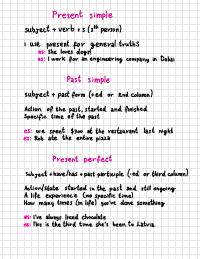 Present simple
subject + verb + s (3rd person)
I use present for general truths
es: she loves dogs!
es: I work for an engineering company in Dubai
Past simple
subject + past form (+ed or 2nd column)
Action of the past, started and finished
Specific time of the past
es: we spent $300 at the restaurant last night
es: Rob ate the entire pizza
Present perfect
Subject + have/has + past participle (-ed or third column)
Action/state started in the past and still ongoing
A life experience (no specific time)
How many times (in life) you've done something
es: I've always loved chocolate
es: This is the third time she's been to Latvia